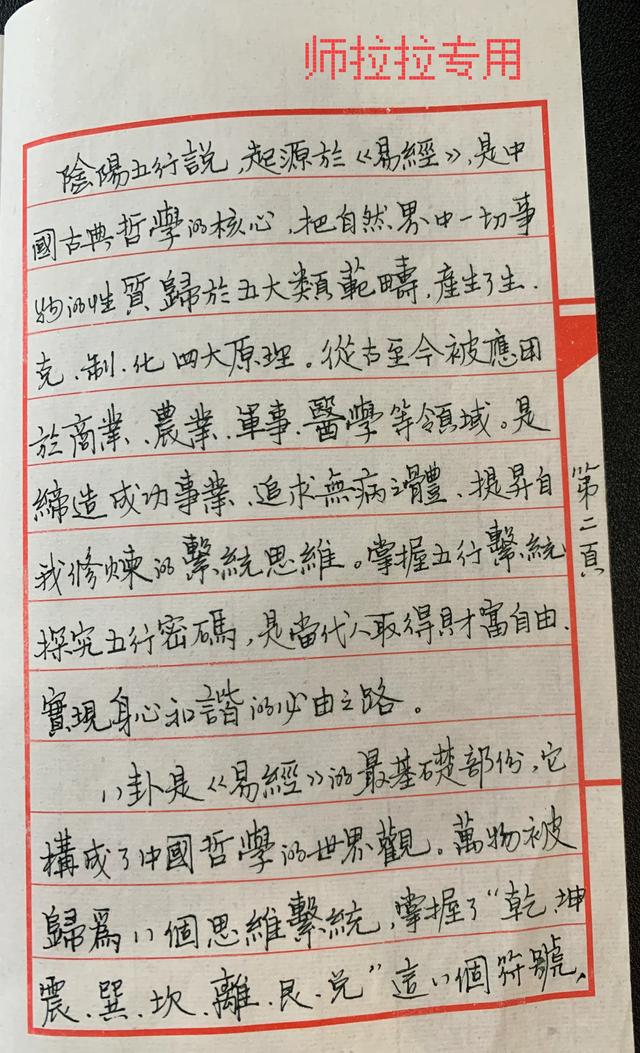 师拉拉专用
陰陽五行説,起源於《易經》,是中
國古典哲學的核心,把自然界中一切事
物的性質歸於五大類範疇,産生了生、
克、制、化四大原理。從古至今被應用
於商業、農業、軍事、醫學等領域。是
締造成功事業、追求無病之體、提昇自
我修煉的繫統思維。掌握五行繫統
探究五行密碼,是當代人取得財富自由、
實現身心和諧的必由之路。
第二頁
八卦是《易經》的最基礎部份,它
構成了中國哲學的世界觀。萬物被
歸爲八個思維繫統,掌握了“乾、坤
震、巽、坎、離、艮、兑”這八個符號、